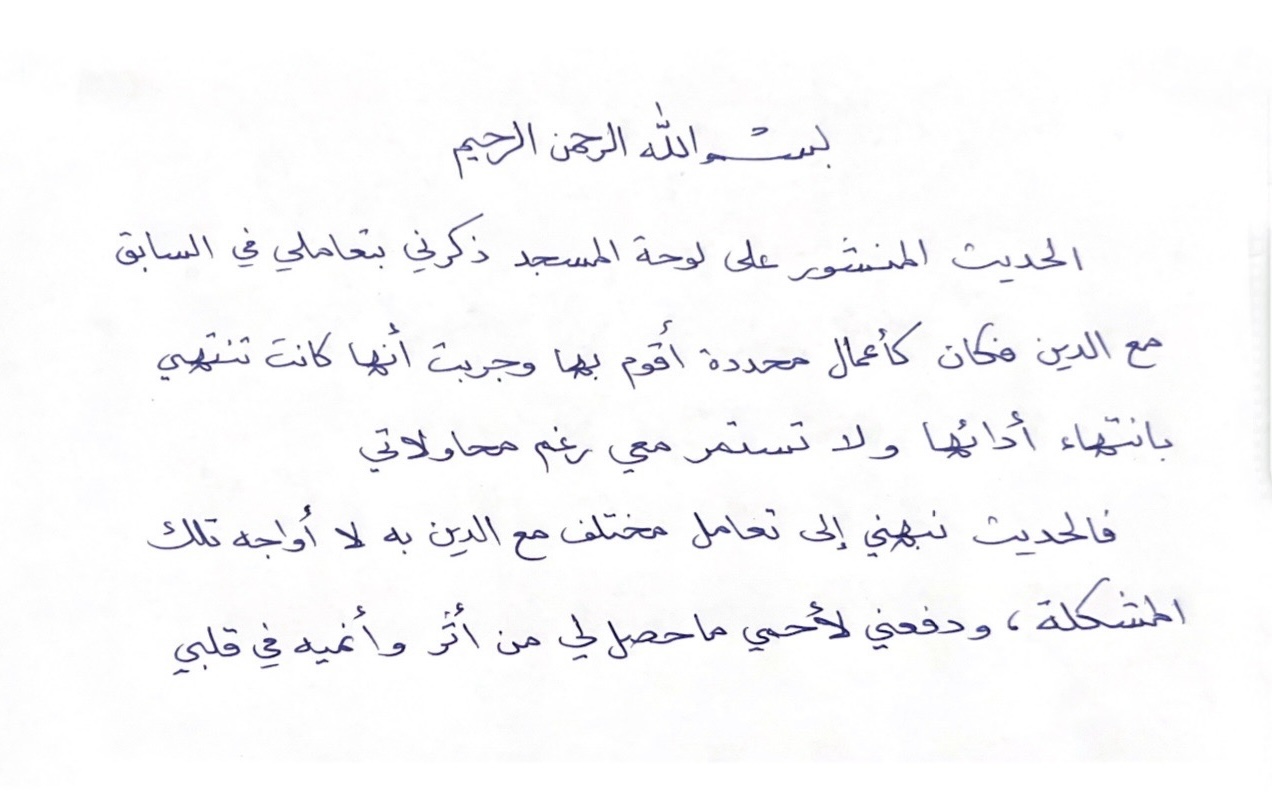 بسم الله الرحمن الرحيم
الحديث المنشور على لوحة المسجد ذكرني بتعاملي في السابق
مع الدين فكان كأعمال محددة أقوم بها وجربت أنها كانت تنتهي
بانتهاء أدائها ولا تستمر معي رغم محاولاتي
فالحديث نبهني إلى تعامل مختلف مع الدين به لا أواجه تلك
المشكلة، ودفعني لأحمي ما حصل لي من أثر وأنميه في قلبي